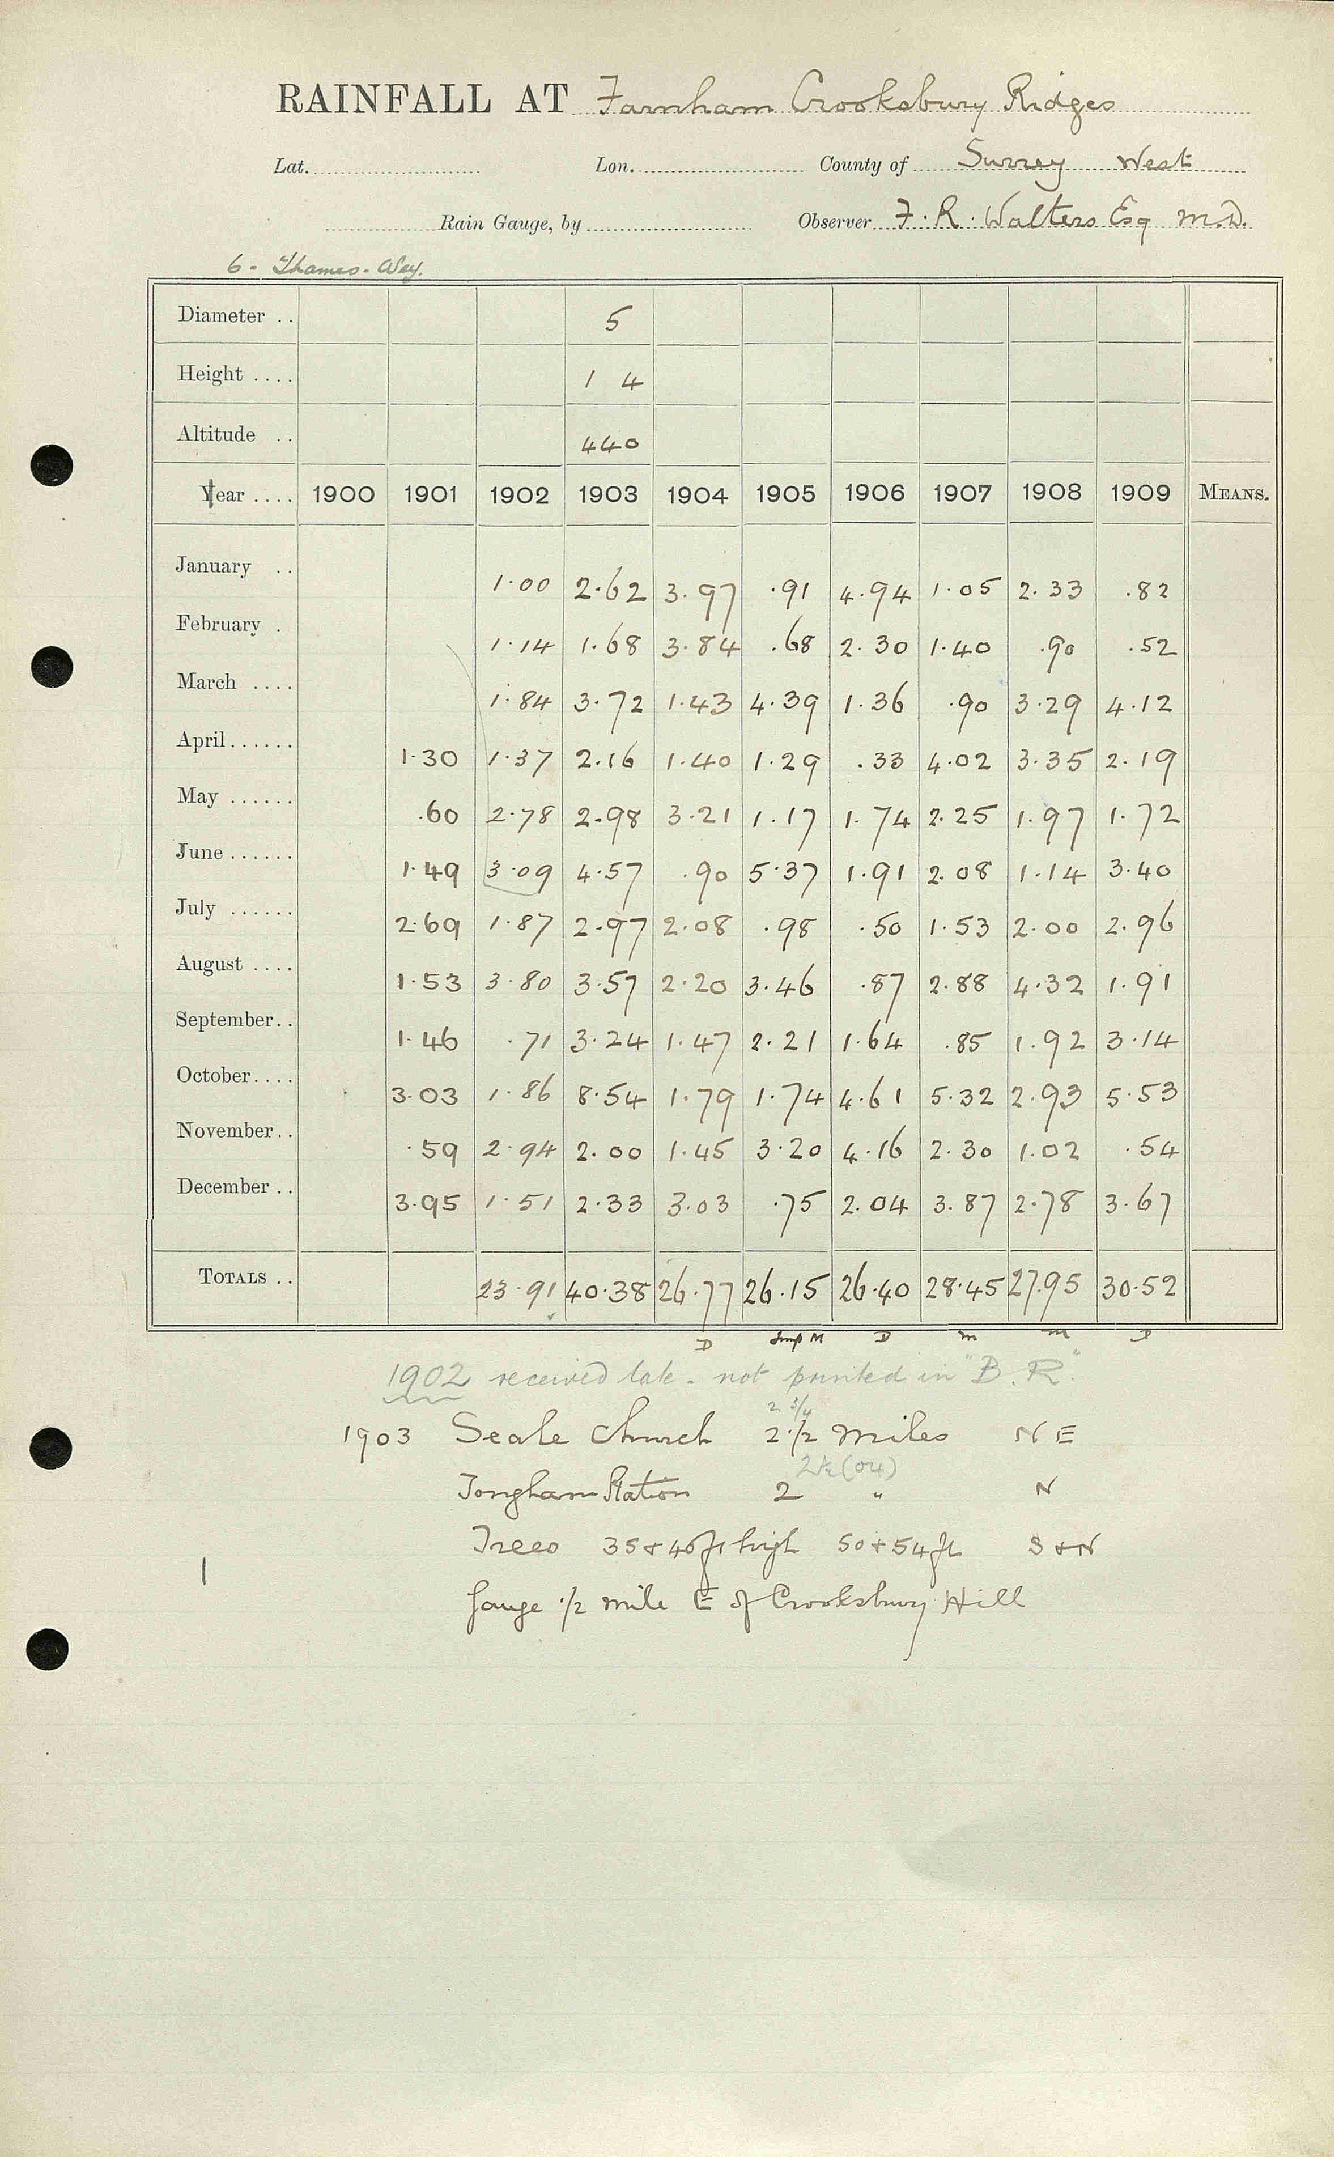 RAINFALL AT Farnham Crooksbury Ridges
Lat. Lon. County of Surrey West
Rain Gauge, by Observer F. R. Walters Esq M.D.
6 - Thames - Wey.
Diameter .. 5
Height .... 1 4
Altitude .. 440
Year .... 1900 1901 1902 1903 1904 1905 1906 1907 1908 1909 MEANS.
January .. 1.00 2.62 3.97 .91 4.94 1.05 2.33 .82
February . 1.14 1.68 3.84 .68 2.30 1.40 .90 .52
March .... 1.84 3.72 1.43 4.39 1.36 .90 3.29 4.12
April...... 1.30 1.37 2.16 1.40 1.29 .33 4.02 3.35 2.19
May ...... .60 2.78 2.98 3.21 1.17 1.74 2.25 1.97 1.72
June...... 1.49 3.09 4.57 .90 5.37 1.91 2.08 1.14 3.40
July ...... 2.69 1.87 2.97 2.08 .98 .50 1.53 2.00 2.96
August .... 1.53 3.80 3.57 2.20 3.46 .87 2.88 4.32 1.91
September.. 1.46 .71 3.24 1.47 2.21 1.64 .85 1.92 3.14
October.... 3.03 1.86 8.54 1.79 1.74 4.61 5.32 2.93 5.53
November.. .59 2.94 2.00 1.45 3.20 4.16 2.30 1.02 .54
December .. 3.95 1.51 2.33 3.03 .75 2.04 3.87 2.78 3.67
TOTALS .. 23.91 40.38 26.77 26.15 26.40 28.45 27.95 30.52
D M D m m D
1902 received late - not printed in "B. R."
2 3/4
1903 Seale Church 2 1/2 miles N E
2 1/2 (04)
Tongham Station 2 " N
Trees 35 & 40 ft high 50 & 54 ft S & N
Gauge 1/2 mile E of Crooksbury Hill